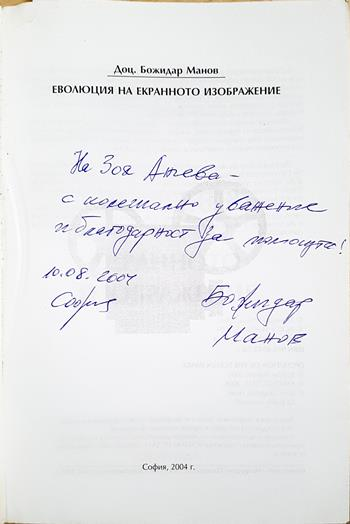 Доц. Божидар Манов
ЕВОЛЮЦИЯ НА ЕКРАННОТО ИЗОБРАЖЕНИЕ
На Зоя Анчева –
с колегиално уважение
и благодарност за помощта!
10.08.2004
София
Божидар
Манов
София, 2004 г.